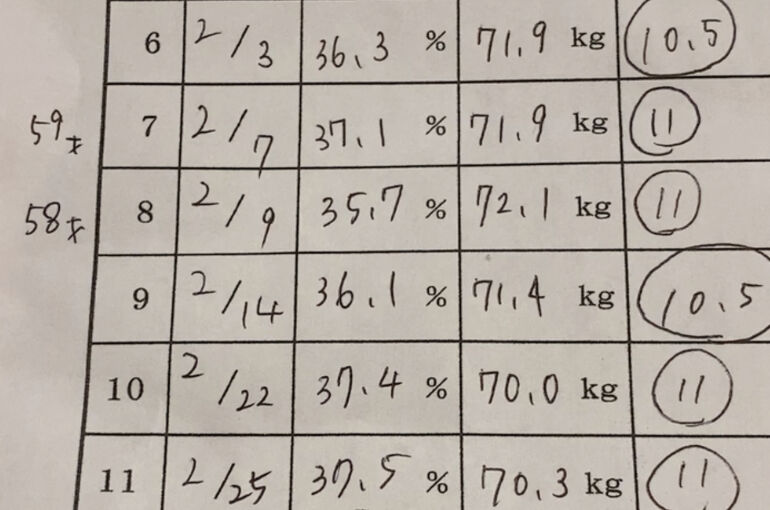 6 2/3 36.3 % 71.9 kg 10.5
59才 7 2/7 37.1 % 71.9 kg 11
58才 8 2/9 35.7 % 72.1 kg 11
9 2/14 36.1 % 71.4 kg 10.5
10 2/22 37.4 % 70.0 kg 11
11 2/25 37.5 % 70.3 kg 11